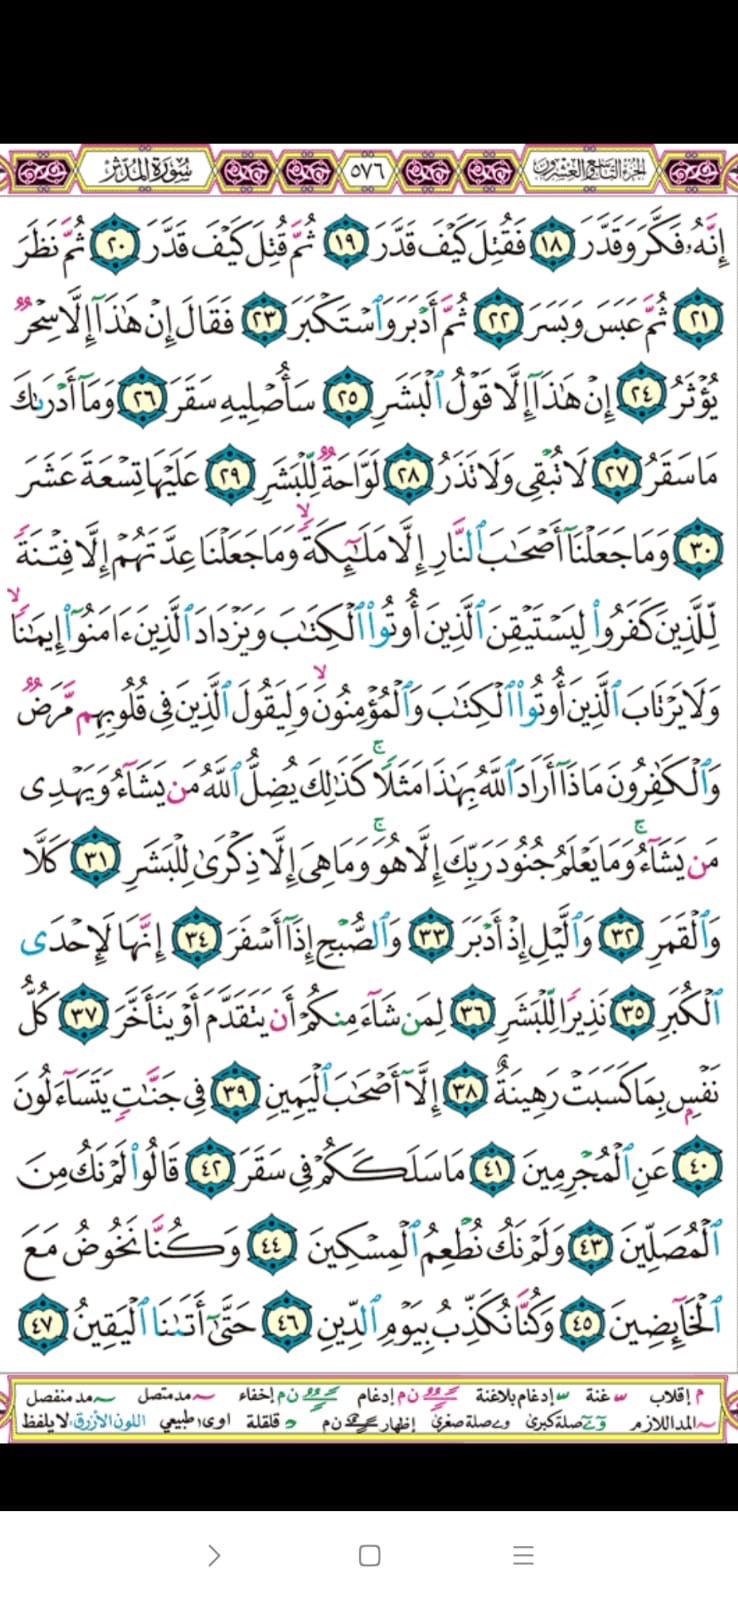 الجزء التاسع والعشرون ٥٧٦ سورة المدثر
إِنَّهُۥ فَكَّرَ وَقَدَّرَ ١٨ فَقُتِلَ كَيْفَ قَدَّرَ ١٩ ثُمَّ قُتِلَ كَيْفَ قَدَّرَ ٢٠ ثُمَّ نَظَرَ
٢١ ثُمَّ عَبَسَ وَبَسَرَ ٢٢ ثُمَّ أَدْبَرَ وَٱسْتَكْبَرَ ٢٣ فَقَالَ إِنْ هَٰذَآ إِلَّا سِحْرٌ
يُؤْثَرُ ٢٤ إِنْ هَٰذَآ إِلَّا قَوْلُ ٱلْبَشَرِ ٢٥ سَأُصْلِيهِ سَقَرَ ٢٦ وَمَآ أَدْرَىٰكَ
مَا سَقَرُ ٢٧ لَا تُبْقِى وَلَا تَذَرُ ٢٨ لَوَّاحَةٌ لِّلْبَشَرِ ٢٩ عَلَيْهَا تِسْعَةَ عَشَرَ
٣٠ وَمَا جَعَلْنَآ أَصْحَٰبَ ٱلنَّارِ إِلَّا مَلَٰٓئِكَةً ۙ وَمَا جَعَلْنَا عِدَّتَهُمْ إِلَّا فِتْنَةً
لِّلَّذِينَ كَفَرُوا۟ لِيَسْتَيْقِنَ ٱلَّذِينَ أُوتُوا۟ ٱلْكِتَٰبَ وَيَزْدَادَ ٱلَّذِينَ ءَامَنُوٓا۟ إِيمَٰنًا ۙ
وَلَا يَرْتَابَ ٱلَّذِينَ أُوتُوا۟ ٱلْكِتَٰبَ وَٱلْمُؤْمِنُونَ ۙ وَلِيَقُولَ ٱلَّذِينَ فِى قُلُوبِهِم مَّرَضٌ
وَٱلْكَٰفِرُونَ مَاذَآ أَرَادَ ٱللَّهُ بِهَٰذَا مَثَلًا ۚ كَذَٰلِكَ يُضِلُّ ٱللَّهُ مَن يَشَآءُ وَيَهْدِى
مَن يَشَآءُ ۚ وَمَا يَعْلَمُ جُنُودَ رَبِّكَ إِلَّا هُوَ ۚ وَمَا هِىَ إِلَّا ذِكْرَىٰ لِلْبَشَرِ ٣١ كَلَّا
وَٱلْقَمَرِ ٣٢ وَٱلَّيْلِ إِذْ أَدْبَرَ ٣٣ وَٱلصُّبْحِ إِذَآ أَسْفَرَ ٣٤ إِنَّهَا لَإِحْدَى
ٱلْكُبَرِ ٣٥ نَذِيرًا لِّلْبَشَرِ ٣٦ لِمَن شَآءَ مِنكُمْ أَن يَتَقَدَّمَ أَوْ يَتَأَخَّرَ ٣٧ كُلُّ
نَفْسٍۭ بِمَا كَسَبَتْ رَهِينَةٌ ٣٨ إِلَّآ أَصْحَٰبَ ٱلْيَمِينِ ٣٩ فِى جَنَّٰتٍ يَتَسَآءَلُونَ
٤٠ عَنِ ٱلْمُجْرِمِينَ ٤١ مَا سَلَكَكُمْ فِى سَقَرَ ٤٢ قَالُوا۟ لَمْ نَكُ مِنَ
ٱلْمُصَلِّينَ ٤٣ وَلَمْ نَكُ نُطْعِمُ ٱلْمِسْكِينَ ٤٤ وَكُنَّا نَخُوضُ مَعَ
ٱلْخَآئِضِينَ ٤٥ وَكُنَّا نُكَذِّبُ بِيَوْمِ ٱلدِّينِ ٤٦ حَتَّىٰٓ أَتَىٰنَا ٱلْيَقِينُ ٤٧
م إقلاب غنة إدغام بلاغنة ن م إدغام ن م إخفاء مد متصل مد منفصل
المد اللازم صلة كبرى صلة صغرى إظهار ن م قلقلة اوى طبيعي اللون الأزرق لا يلفظ